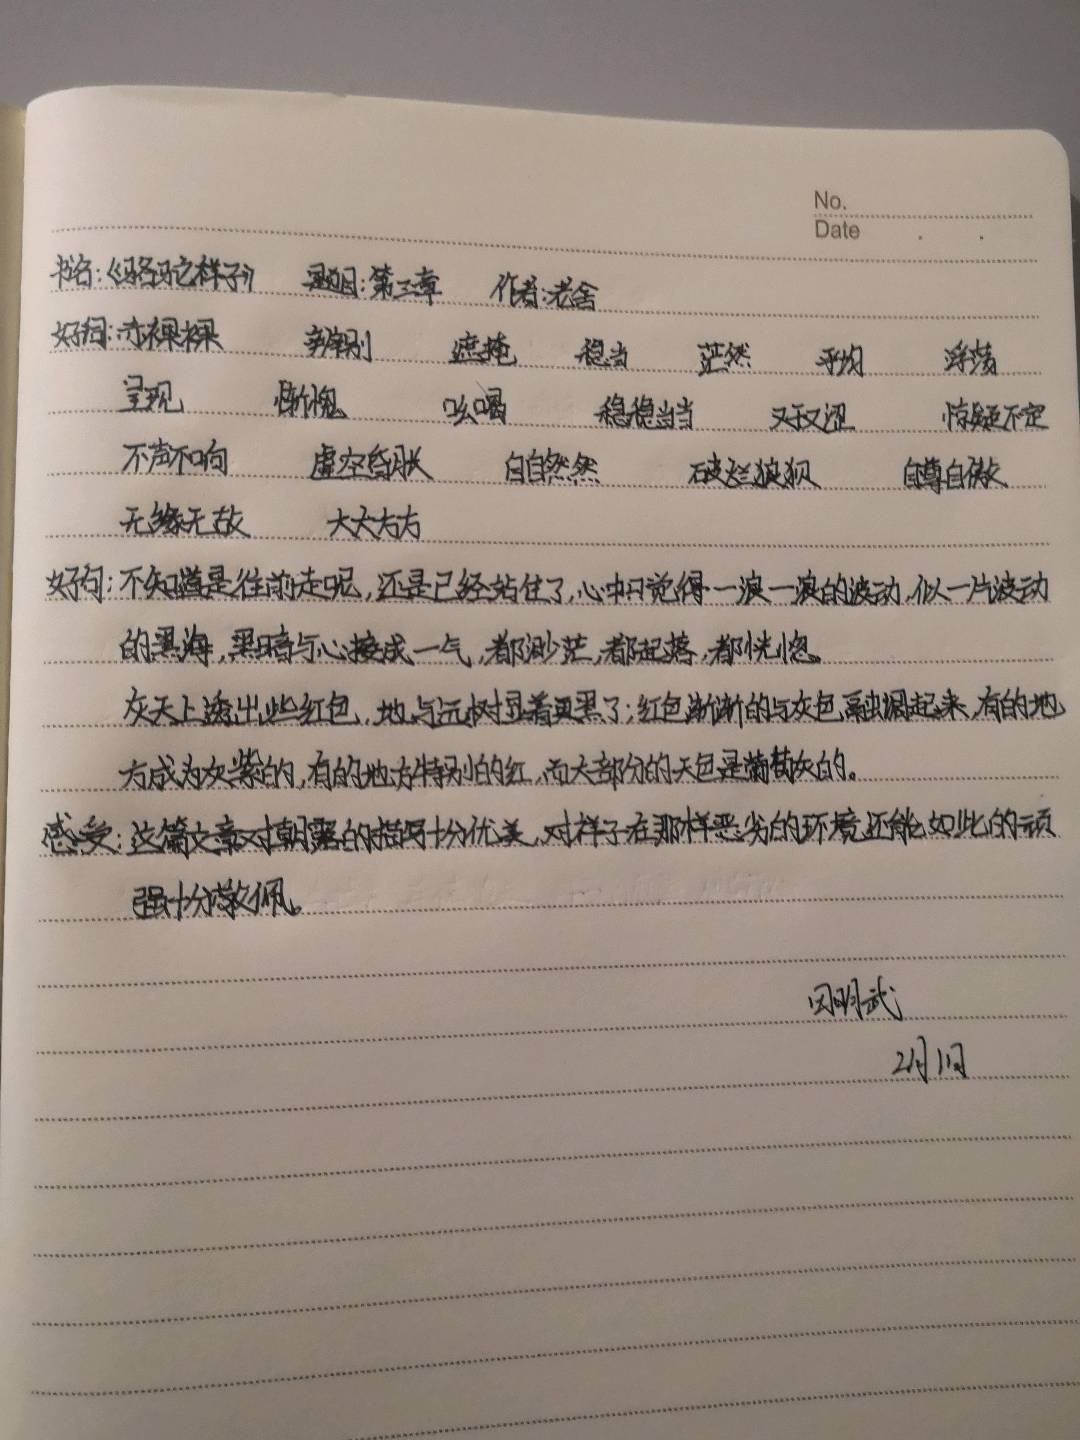 No.
Date
书名:《骆驼之样子》 题目:第三章 作者:老舍
好词:赤裸裸 辨别 遮掩 稳当 茫然 平均 浮荡
呈现 惭愧 吆喝 稳稳当当 惊疑不定
不声不响 虚空昏胀 自自然然 破烂狼狈 自尊自傲
无缘无故 大大方方
好句:不知道是往前走呢,还是已经站住了,心中只觉得一浪一浪的波动,似一片波动
的黑海,黑暗与心接成一气,都渺茫,都起落,都恍惚。
灰天上透出些红色,地与远树显着更黑了;红色渐渐的与灰色融调起来,有的地
方成为灰紫的,有的地方特别的红,而大部分的天色是葡萄灰的。
感受:这篇文章对朝露的描写十分优美,对祥子在那样恶劣的环境还能如此的顽
强十分敬佩。
明武
2月1日